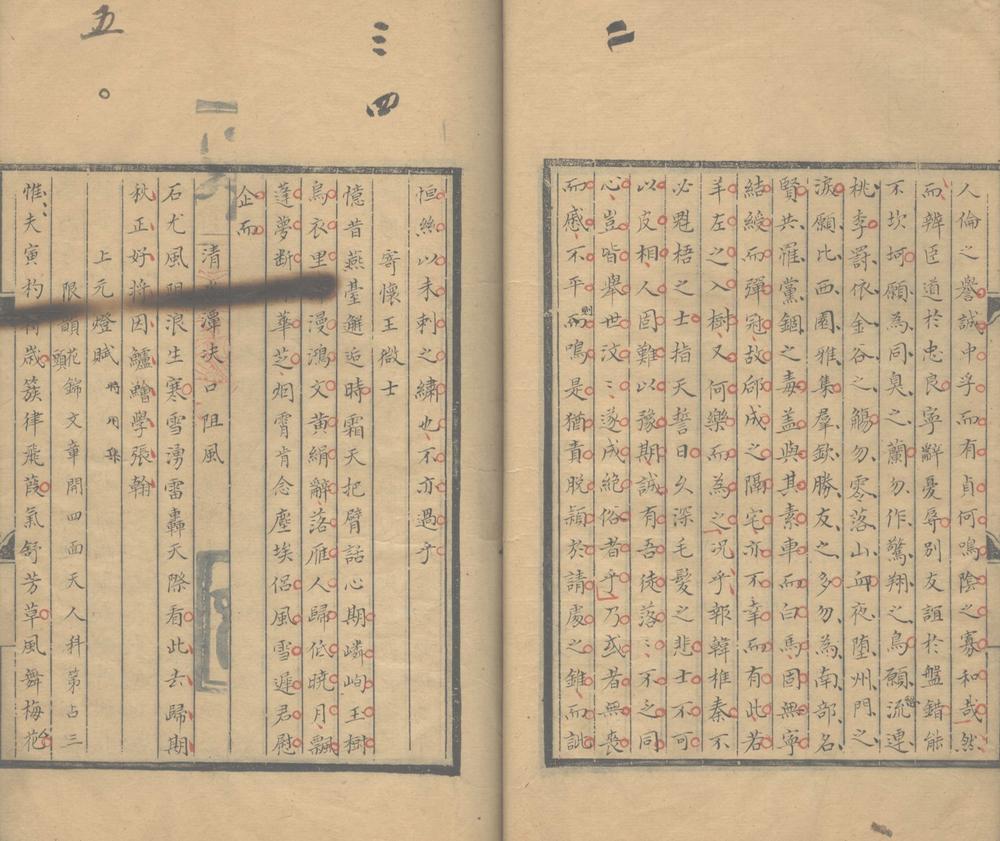 二
人倫之譽誠中孚而有貞何鳴陰之寡和哉然
而辨臣道於忠良寧辭憂辱別友誼於盤錯能
不坎坷願為同臭之蘭勿作驚翔之鳥願流連
桃李罸依金谷之觴勿零落山血夜堕州門之
淚願比西園雅集羣欽勝友之多勿為南部名
賢共罹黨錮之毒盖與其素車而白馬固無寧
結綬而彈冠故郈成之隔宅亦不幸而有此若
羊左之入樹又何樂而為之况乎報韓椎秦不
必魁梧之士指天誓日久深毛髮之悲士不可
以皮相人固難以豫期誠有吾徒落〻不之同
心豈皆舉世汶〻遂成絶俗者乎乃或者無喪
而慼不平則鳴是猶責脱穎於請處之錐而訿
三
四
五
恒絲以未刺之繡也不亦過乎
寄懷王微士
憶昔燕臺邂逅時霜天把臂話心期嶙峋玉樹
烏衣里漫鴻文黄絹辭落雁人歸低曉月飄
蓬夢斷華芝烟霄肯念塵埃侣風雪遲君慰
企而
清潭决口阻風
石尤風阻浪生寒雪湧雷轟天際看此去歸期
秋正好將因鱸鱠學張翰
上元燈賦
限韻頭花錦文章開四面天人科第占三
惟夫寅杓歲簇律飛葭氣舒芳草風舞梅花